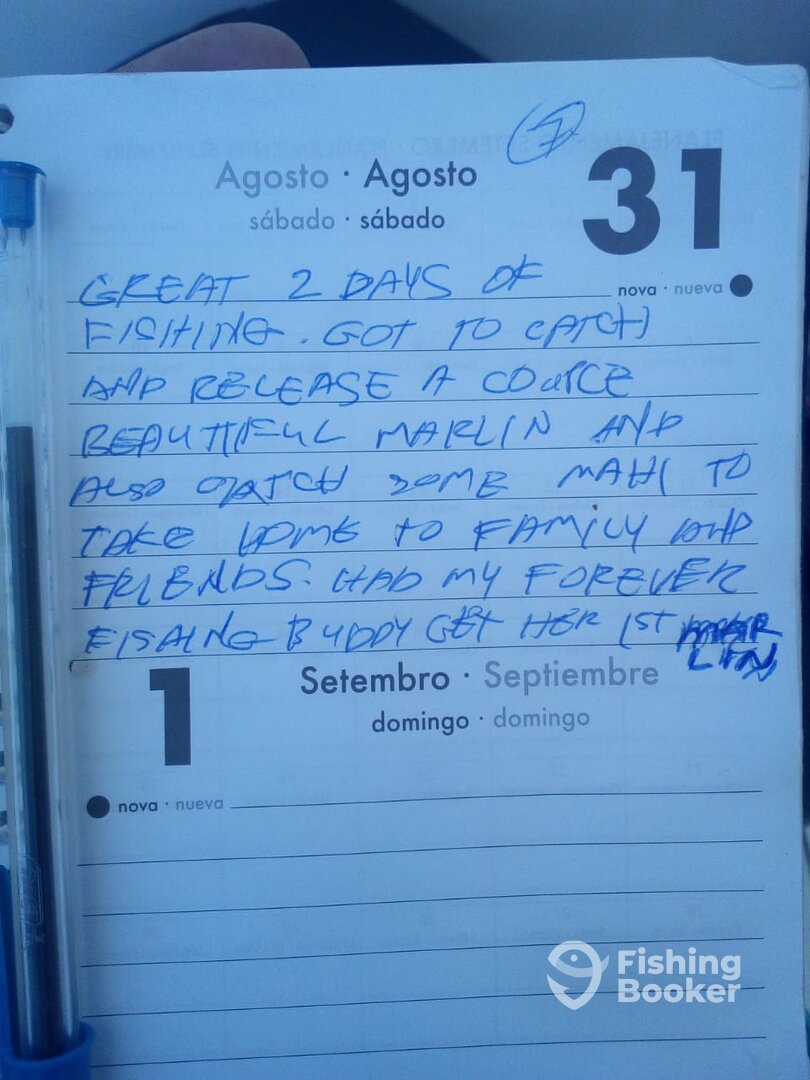 7
Agosto · Agosto
31
sábado · sábado
nova · nueva
GREAT 2 DAYS OF
FISHING. GOT TO CATCH
AND RELEASE A COUPLE
BEAUTIFUL MARLIN AND
ALSO CATCH SOME MAHI TO
TAKE HOME TO FAMILY AND
FRIENDS. HAD MY FOREVER
FISHING BUDDY GET HER 1ST MARLIN
1
Setembro · Septiembre
domingo · domingo
nova · nueva
Fishing
Booker